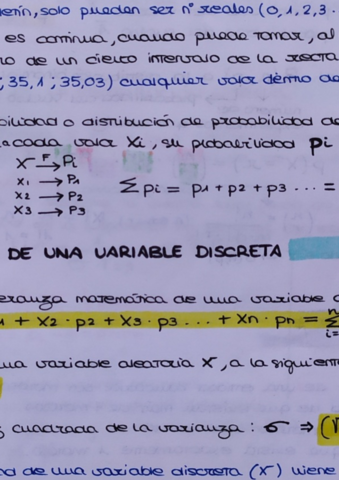 solo pueden ser nº reales (0, 1, 2, 3.
es continua, cuando puede tomar, al
de un cierto intervalo de la recta
; 35,1 ; 35,03) cualquier valor dentro de
o distribución de probabilidad de
cada valor Xi, su probabilidad pi
X F→ Pi
X1 → P1
X2 → P2
X3 → P3
Σ pi = p1 + p2 + p3 ... =
DE UNA VARIABLE DISCRETA
matemática de una variable
+ X2 · p2 + X3 · p3 ... + Xn · pn = Σ n i=
variable aleatoria X, a la siguiente
cuadrada de la varianza : σ ⇒ (√
de una variable discreta (X) viene